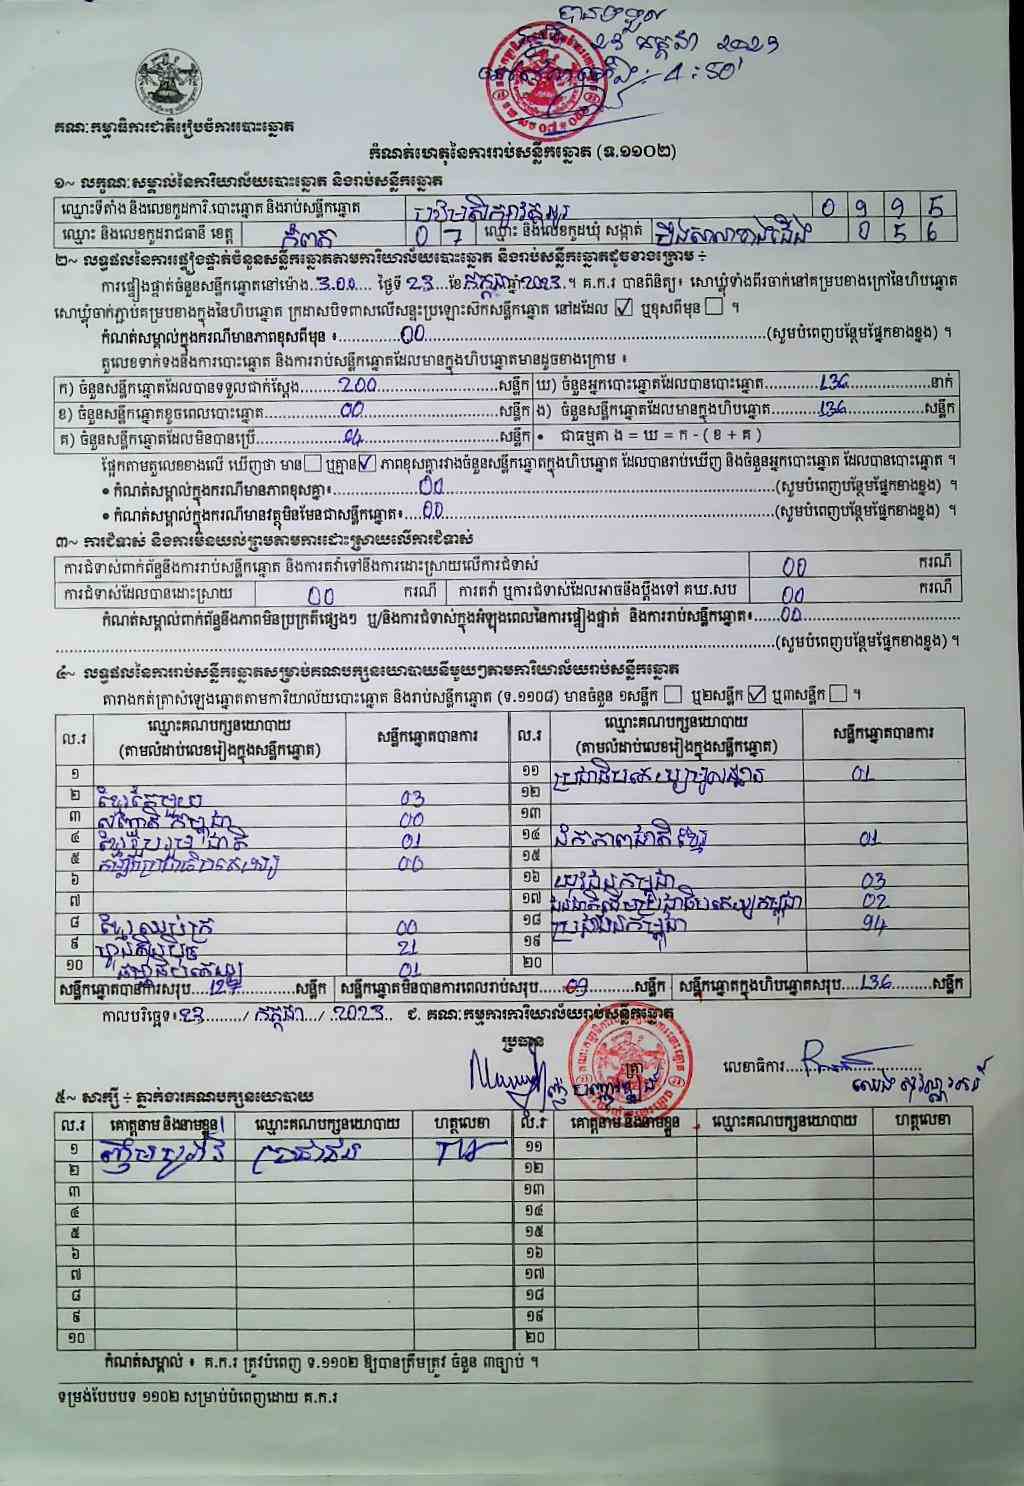 បានទទួល
ថ្ងៃទី 23 កក្កដា 2023
4:50
គណៈកម្មាធិការជាតិរៀបចំការបោះឆ្នោត
កំណត់ហេតុនៃការរាប់សន្លឹកឆ្នោត (ទ.១១០២)
១~ លក្ខណៈសម្គាល់នៃការិយាល័យបោះឆ្នោត និងរាប់សន្លឹកឆ្នោត
ឈ្មោះទីតាំង និងលេខកូដការិ.បោះឆ្នោត និងរាប់សន្លឹកឆ្នោត 0 9 9 5
ឈ្មោះ និងលេខកូដរាជធានី ខេត្ត កំពត 0 7 ឈ្មោះ និងលេខកូដឃុំ សង្កាត់ បឹងសាលាខាងជើង 0 5 6
២~ លទ្ធផលនៃការផ្ទៀងផ្ទាត់ចំនួនសន្លឹកឆ្នោតតាមការិយាល័យបោះឆ្នោត និងរាប់សន្លឹកឆ្នោតដូចខាងក្រោម ÷
ការផ្ទៀងផ្ទាត់ចំនួនសន្លឹកឆ្នោតនៅម៉ោង..3.00.... ថ្ងៃទី 23...ខែ កក្កដា ឆ្នាំ 2023..។ គ.ក.រ បានពិនិត្យ៖ សោឃ្លុំទាំងពីរចាក់នៅគម្របខាងក្រៅនៃហិបឆ្នោត
សោឃ្លុំចាក់ភ្ជាប់គម្របខាងក្នុងនៃហិបឆ្នោត ក្រដាសបិទពាសលើសន្ទះប្រឡោះស៊កសន្លឹកឆ្នោត នៅដដែល ☑ ឬខុសពីមុន ☐ ។
កំណត់សម្គាល់ក្នុងករណីមានភាពខុសពីមុន ៖ 00 (សូមបំពេញបន្ថែមផ្នែកខាងខ្នង) ។
តួលេខទាក់ទងនឹងការបោះឆ្នោត និងការរាប់សន្លឹកឆ្នោតដែលមានក្នុងហិបឆ្នោតមានដូចខាងក្រោម ៖
ក) ចំនួនសន្លឹកឆ្នោតដែលបានទទួលជាក់ស្ដែង 200 សន្លឹក ឃ) ចំនួនអ្នកបោះឆ្នោតដែលបានបោះឆ្នោត 136 នាក់
ខ) ចំនួនសន្លឹកឆ្នោតខូចពេលបោះឆ្នោត 00 សន្លឹក ង) ចំនួនសន្លឹកឆ្នោតដែលមានក្នុងហិបឆ្នោត 136 សន្លឹក
គ) ចំនួនសន្លឹកឆ្នោតដែលមិនបានប្រើ 64 សន្លឹក • ជាធម្មតា ង = ឃ = ក - ( ខ + គ )
ផ្អែកតាមតួលេខខាងលើ ឃើញថា មាន ☐ ឬគ្មាន ☑ ភាពខុសគ្នារវាងចំនួនសន្លឹកឆ្នោតក្នុងហិបឆ្នោត ដែលបានរាប់ឃើញ និងចំនួនអ្នកបោះឆ្នោត ដែលបានបោះឆ្នោត ។
• កំណត់សម្គាល់ក្នុងករណីមានភាពខុសគ្នា៖ 00 (សូមបំពេញបន្ថែមផ្នែកខាងខ្នង) ។
• កំណត់សម្គាល់ក្នុងករណីមានវត្ថុមិនមែនជាសន្លឹកឆ្នោត៖ 00 (សូមបំពេញបន្ថែមផ្នែកខាងខ្នង) ។
៣~ ការជំទាស់ និងការមិនយល់ព្រមតាមការដោះស្រាយលើការជំទាស់
ការជំទាស់ពាក់ព័ន្ធនឹងការរាប់សន្លឹកឆ្នោត និងការតវ៉ាទៅនឹងការដោះស្រាយលើការជំទាស់ 00 ករណី
ការជំទាស់ដែលបានដោះស្រាយ 00 ករណី ការតវ៉ា ឬការជំទាស់ដែលអាចនឹងប្ដឹងទៅ គឃ.សប 00 ករណី
កំណត់សម្គាល់ពាក់ព័ន្ធនឹងភាពមិនប្រក្រតីផ្សេងៗ ឬ/និងការជំទាស់ក្នុងអំឡុងពេលនៃការផ្ទៀងផ្ទាត់ និងការរាប់សន្លឹកឆ្នោត៖ 00
(សូមបំពេញបន្ថែមផ្នែកខាងខ្នង) ។
៤~ លទ្ធផលនៃការរាប់សន្លឹកឆ្នោតសម្រាប់គណបក្សនយោបាយនីមួយៗតាមការិយាល័យរាប់សន្លឹកឆ្នោត
តារាងកត់ត្រាសំឡេងឆ្នោតតាមការិយាល័យបោះឆ្នោត និងរាប់សន្លឹកឆ្នោត (ទ.១១០៨) មានចំនួន ១សន្លឹក ☐ ឬ២សន្លឹក ☑ ឬ៣សន្លឹក ☐ ។
ល.រ ឈ្មោះគណបក្សនយោបាយ (តាមលំដាប់លេខរៀងក្នុងសន្លឹកឆ្នោត) សន្លឹកឆ្នោតបានការ ល.រ ឈ្មោះគណបក្សនយោបាយ (តាមលំដាប់លេខរៀងក្នុងសន្លឹកឆ្នោត) សន្លឹកឆ្នោតបានការ
១ ១១ ប្រជាធិបតេយ្យមូលដ្ឋាន 01
២ ខ្មែរតែមួយ 03 ១២
៣ សញ្ជាតិកម្ពុជា 00 ១៣
៤ ខ្មែររួបរួមជាតិ 01 ១៤ ឯកភាពជាតិខ្មែរ 01
៥ កម្លាំងប្រជាធិបតេយ្យ 00 ១៥
៦ ១៦ យុវជនកម្ពុជា 03
៧ ១៧ 02
៨ ខ្មែរឈប់ក្រ 00 ១៨ ប្រជាជនកម្ពុជា 94
៩ ហ្វ៊ុនស៊ិនប៉ិច 21 ១៩
១០ ធម្មាធិបតេយ្យ 01 ២០
សន្លឹកឆ្នោតបានការសរុប 127 សន្លឹក សន្លឹកឆ្នោតមិនបានការពេលរាប់សរុប 09 សន្លឹក សន្លឹកឆ្នោតក្នុងហិបឆ្នោតសរុប 136 សន្លឹក
កាលបរិច្ឆេទ៖ 23 / កក្កដា / 2023 ជ. គណៈកម្មការការិយាល័យរាប់សន្លឹកឆ្នោត
ប្រធាន
ត្រា លេខាធិការ
៥~ សាក្សី ÷ ភ្នាក់ងារគណបក្សនយោបាយ
ល.រ គោត្តនាម និងនាមខ្លួន ឈ្មោះគណបក្សនយោបាយ ហត្ថលេខា ល.រ គោត្តនាម និងនាមខ្លួន ឈ្មោះគណបក្សនយោបាយ ហត្ថលេខា
១ ប្រជាជន ១១
២ ១២
៣ ១៣
៤ ១៤
៥ ១៥
៦ ១៦
៧ ១៧
៨ ១៨
៩ ១៩
១០ ២០
កំណត់សម្គាល់ ៖ គ.ក.រ ត្រូវបំពេញ ទ.១១០២ ឱ្យបានត្រឹមត្រូវ ចំនួន ៣ច្បាប់ ។
ទម្រង់បែបបទ ១១០២ សម្រាប់បំពេញដោយ គ.ក.រ